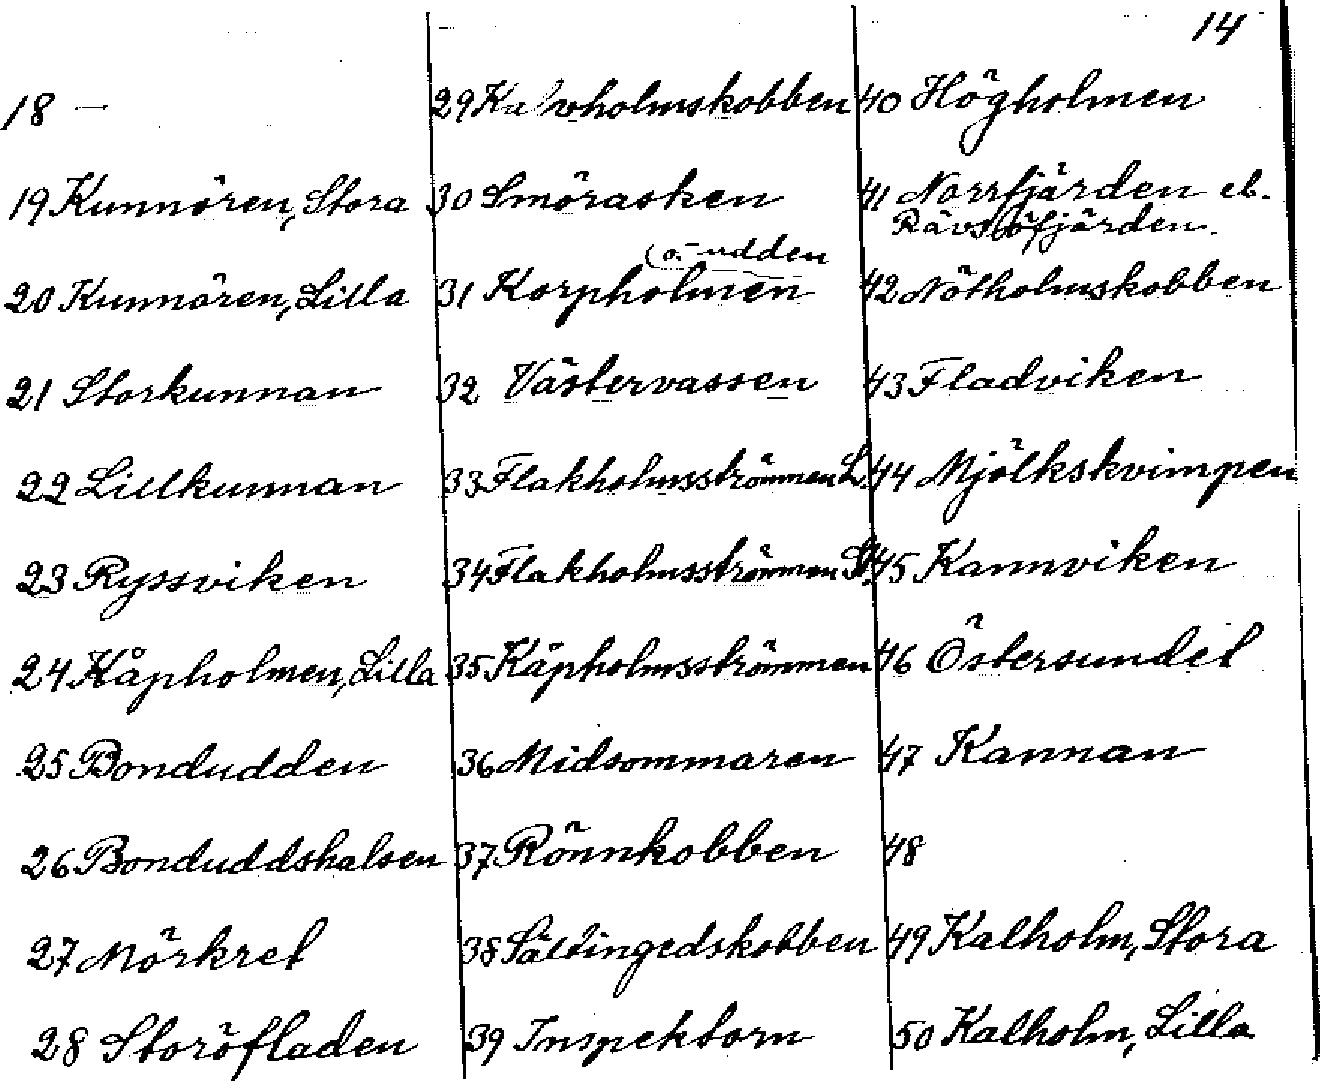 14
18 —
19 Kunnören, Stora
20 Kunnören, Lilla
21 Storkunnan
22 Lillkunnan
23 Ryssviken
24 Kåpholmen, Lilla
25 Bondudden
26 Bonduddshalsen
27 Mörkret
28 Storöfladen
29 Kalvholmskobben
30 Smörasken
(o. -udden
31 Korpholmen
32 Västervassen
33 Flakholmsströmmen L.
34 Flakholmsströmmen St.
35 Kåpholmsströmmen
36 Midsommaren
37 Rönnkobben
38 Sältingedskobben
39 Inspektorn
40 Högholmen
41 Norrfjärden el.
Rävsköfjärden.
42 Nötholmskobben
43 Fladviken
44 Mjölkskvimpen
45 Kannviken
46 Östersundet
47 Kannan
48
49 Kalholm, Stora
50 Kalholm, Lilla